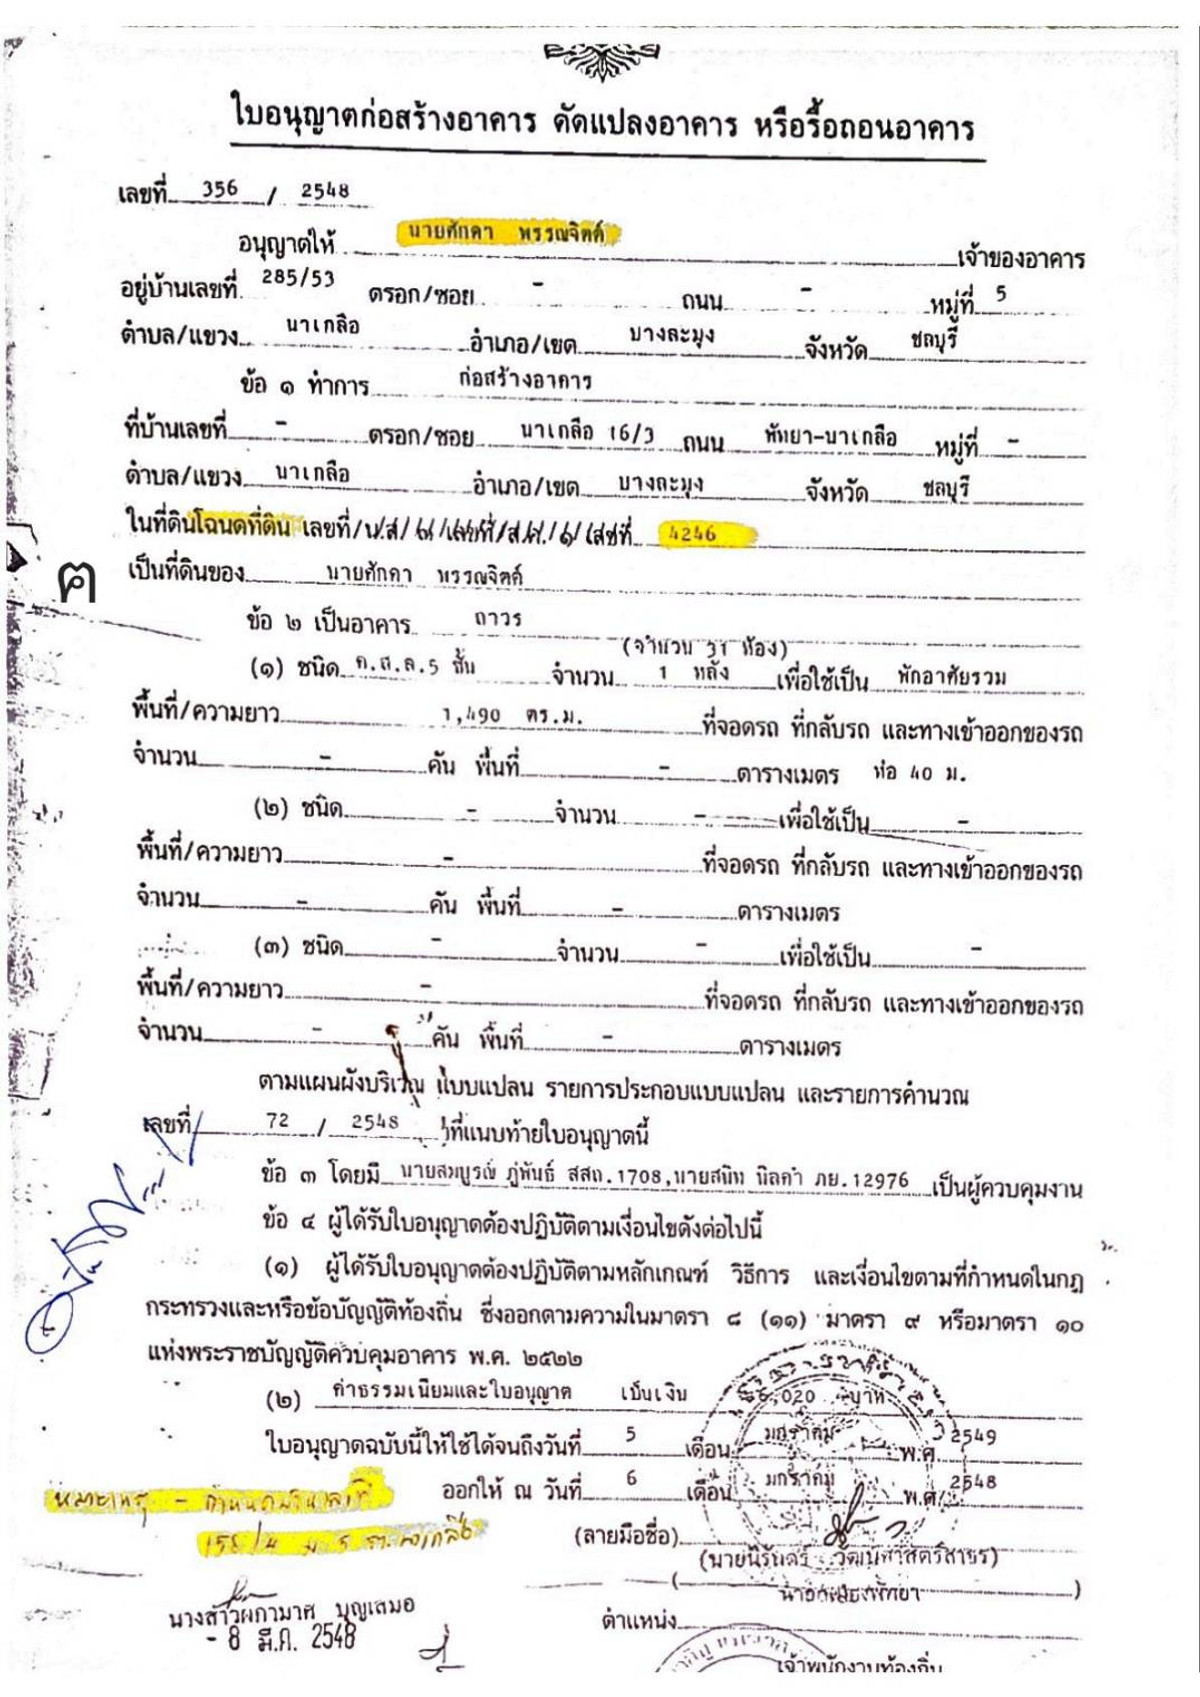 ใบอนุญาตก่อสร้างอาคาร ดัดแปลงอาคาร หรือรื้อถอนอาคาร
เลขที่ 356 / 2548
อนุญาตให้ นายศักดา พรรณจิตต์ เจ้าของอาคาร
อยู่บ้านเลขที่ 285/53 ตรอก/ซอย - ถนน - หมู่ที่ 5
ตำบล/แขวง นาเกลือ อำเภอ/เขต บางละมุง จังหวัด ชลบุรี
ข้อ ๑ ทำการ ก่อสร้างอาคาร
ที่บ้านเลขที่ - ตรอก/ซอย นาเกลือ 16/3 ถนน พัทยา-นาเกลือ หมู่ที่ -
ตำบล/แขวง นาเกลือ อำเภอ/เขต บางละมุง จังหวัด ชลบุรี
ในที่ดินโฉนดที่ดิน เลขที่/น.ส./๓/เลขที่/ส.ค./๑/เลขที่ 4246
ฅ
เป็นที่ดินของ นายศักดา พรรณจิตต์
ข้อ ๒ เป็นอาคาร ถาวร
(จำนวน 31 ห้อง)
(๑) ชนิด ค.ส.ล.5 ชั้น จำนวน 1 หลัง เพื่อใช้เป็น พักอาศัยรวม
พื้นที่/ความยาว 1,490 ตร.ม. ที่จอดรถ ที่กลับรถ และทางเข้าออกของรถ
จำนวน - คัน พื้นที่ - ตารางเมตร ท่อ 40 ม.
(๒) ชนิด - จำนวน - เพื่อใช้เป็น -
พื้นที่/ความยาว - ที่จอดรถ ที่กลับรถ และทางเข้าออกของรถ
จำนวน - คัน พื้นที่ - ตารางเมตร
(๓) ชนิด - จำนวน - เพื่อใช้เป็น -
พื้นที่/ความยาว - ที่จอดรถ ที่กลับรถ และทางเข้าออกของรถ
จำนวน - คัน พื้นที่ - ตารางเมตร
ตามแผนผังบริเวณ แบบแปลน รายการประกอบแบบแปลน และรายการคำนวณ
เลขที่ 72 / 2548 ที่แนบท้ายใบอนุญาตนี้
ข้อ ๓ โดยมี นายสมบูรณ์ ภู่พันธ์ สสถ.1708,นายสนิท นิลคำ ภย.12976 เป็นผู้ควบคุมงาน
ข้อ ๔ ผู้ได้รับใบอนุญาตต้องปฏิบัติตามเงื่อนไขดังต่อไปนี้
(๑) ผู้ได้รับใบอนุญาตต้องปฏิบัติตามหลักเกณฑ์ วิธีการ และเงื่อนไขตามที่กำหนดในกฎ
กระทรวงและหรือข้อบัญญัติท้องถิ่น ซึ่งออกตามความในมาตรา ๘ (๑๑) มาตรา ๙ หรือมาตรา ๑๐
แห่งพระราชบัญญัติควบคุมอาคาร พ.ศ. ๒๕๒๒
(๒) ค่าธรรมเนียมและใบอนุญาต เป็นเงิน 6,020 บาท
ใบอนุญาตฉบับนี้ให้ใช้ได้จนถึงวันที่ 5 เดือน มกราคม พ.ศ. 2549
ออกให้ ณ วันที่ 6 เดือน มกราคม พ.ศ. 2548
หมายเหตุ - กำหนดบ้านเลขที่
155/4 ม.5 ต.นาเกลือ
(ลายมือชื่อ)
(นายนิรันดร์ วัฒนศาสตร์สาธร)
( นายกเมืองพัทยา )
นางสาวผกามาศ บุญเสมอ
- 8 มี.ค. 2548
ตำแหน่ง
เจ้าพนักงานท้องถิ่น